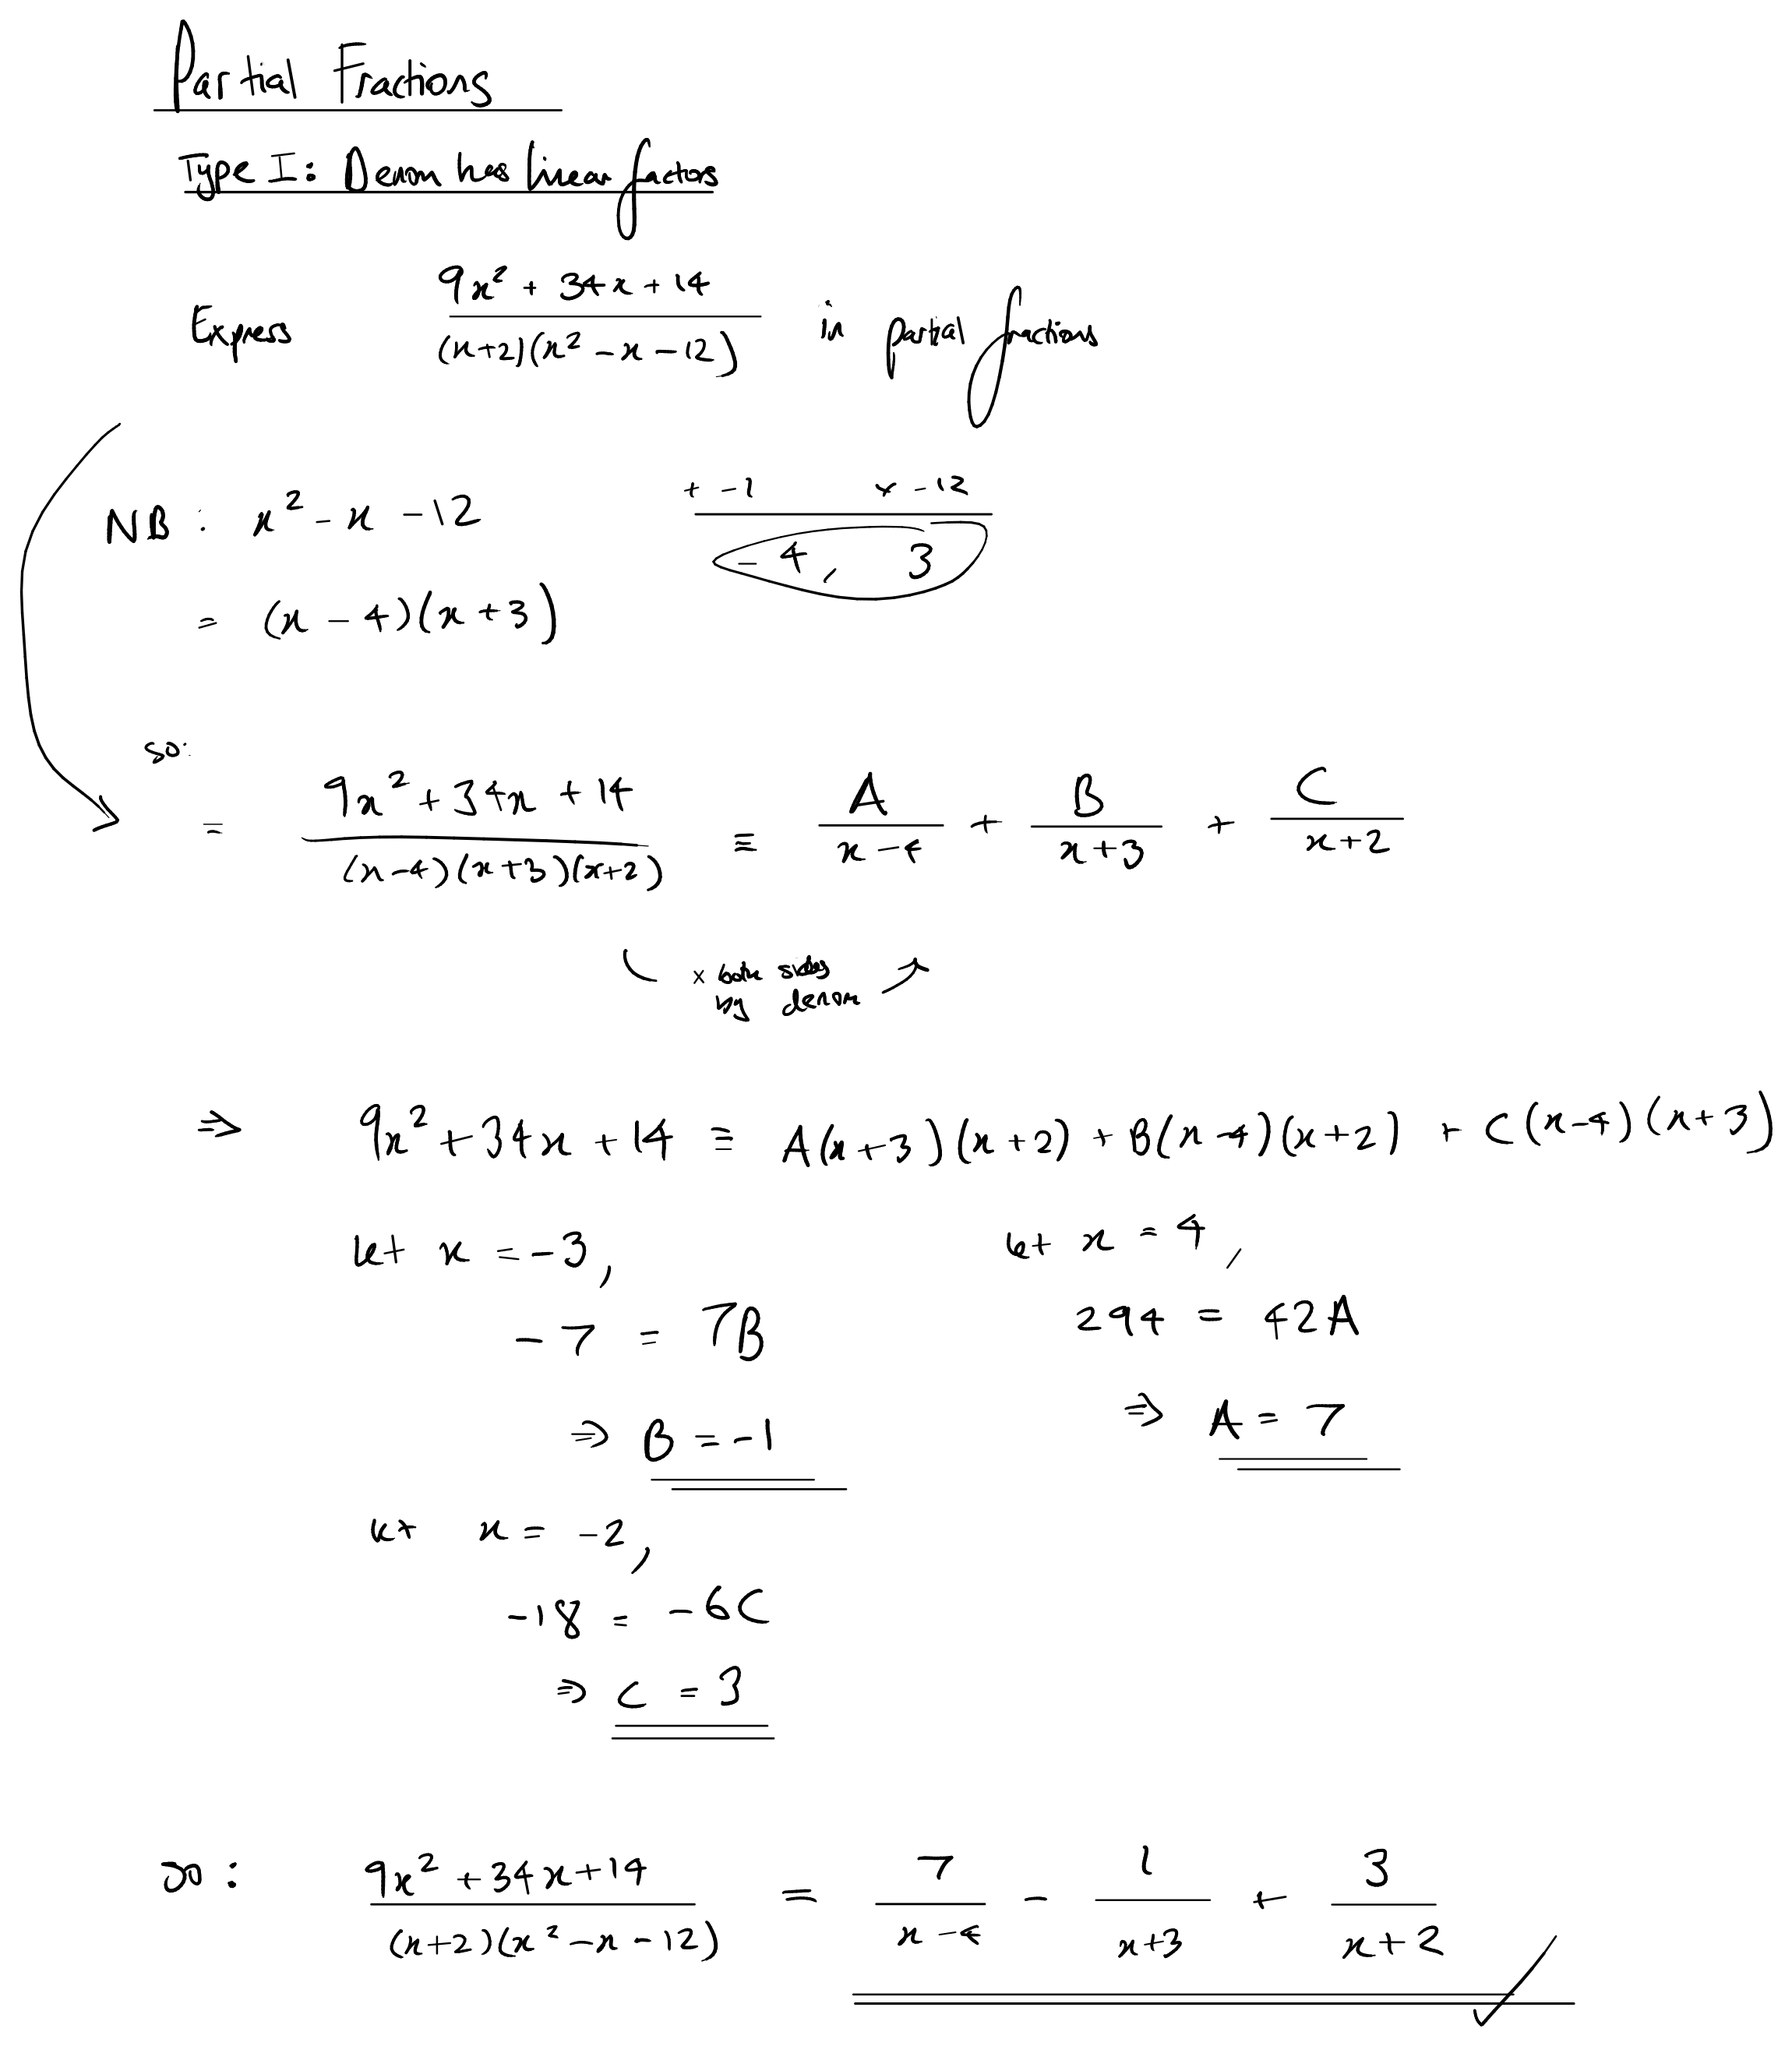 Partial Fractions
Type I: Denom has linear factors
Express (9x² + 34x + 14)/((x+2)(x² - x - 12)) in partial fractions
NB : x² - x - 12
+ -1 × -12
-4, 3
= (x - 4)(x + 3)
so:
= (9x² + 34x + 14)/((x-4)(x+3)(x+2)) ≡ A/(x-4) + B/(x+3) + C/(x+2)
× both sides
by denom
⇒ 9x² + 34x + 14 ≡ A(x+3)(x+2) + B(x-4)(x+2) + C(x-4)(x+3)
let x = -3,
-7 = 7B
⇒ B = -1
let x = 4,
294 = 42A
⇒ A = 7
let x = -2,
-18 = -6C
⇒ C = 3
so: (9x² + 34x + 14)/((x+2)(x² - x - 12)) = 7/(x-4) - 1/(x+3) + 3/(x+2)